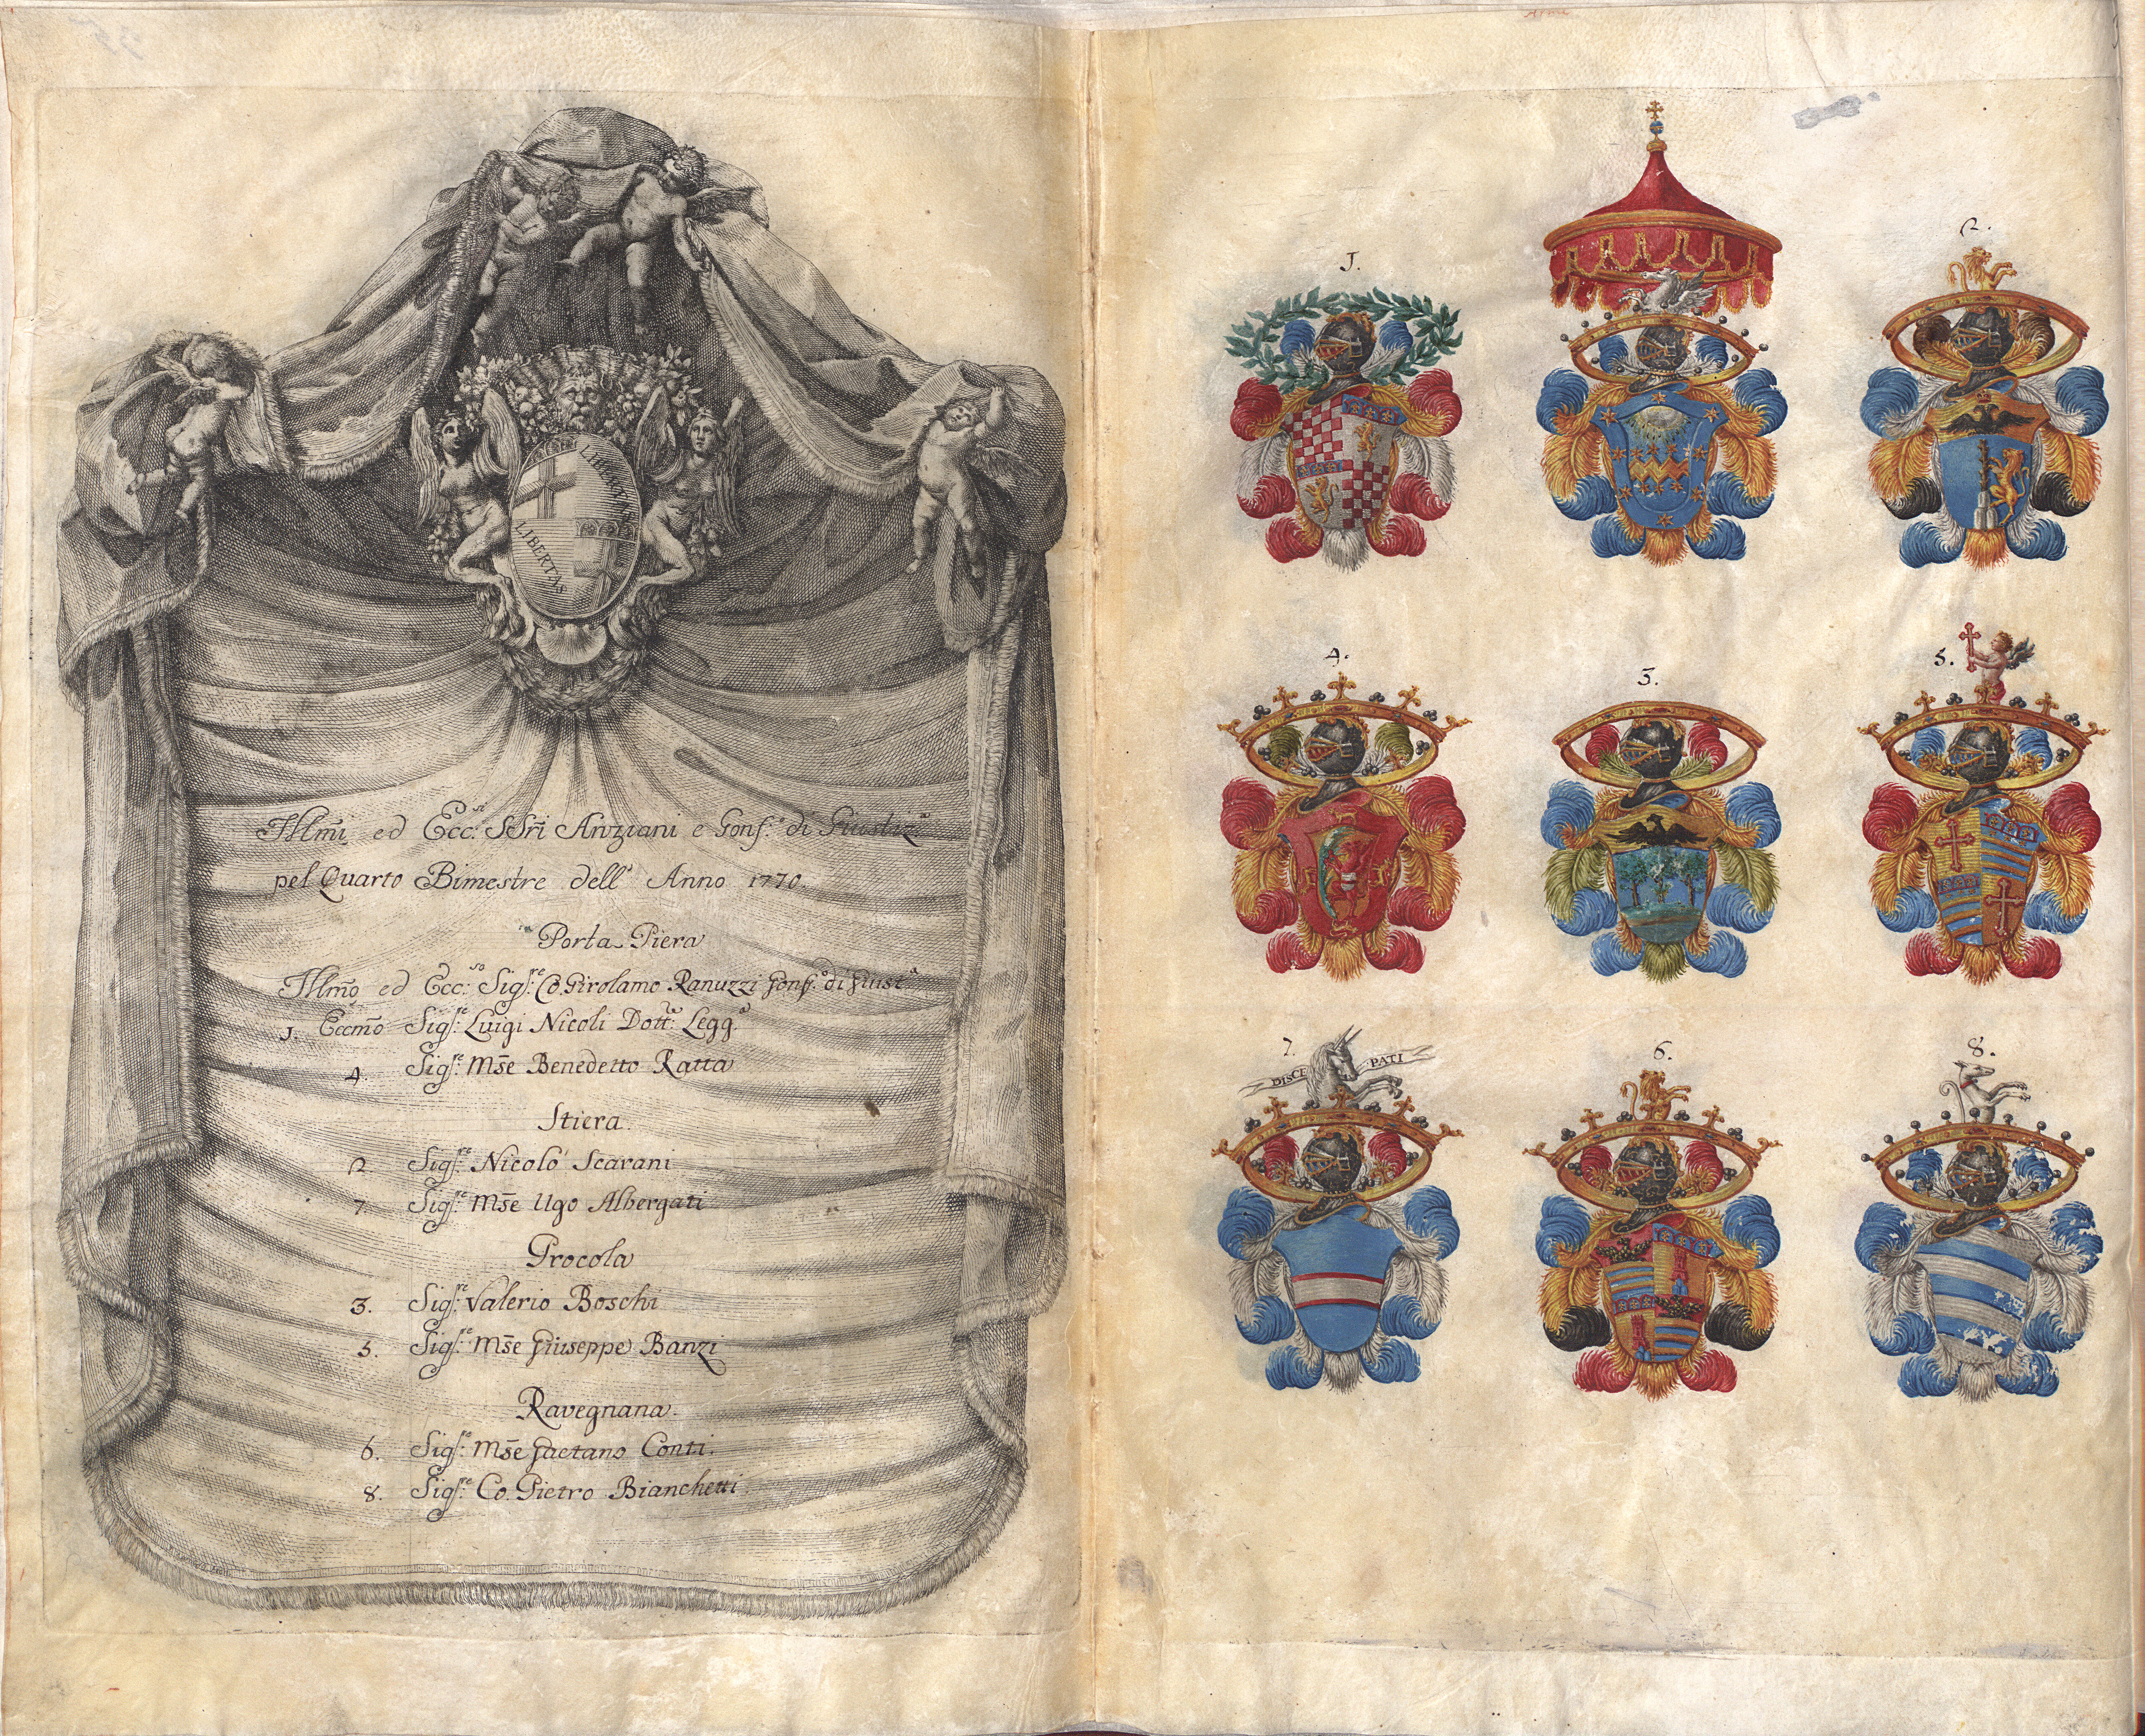 LIBERTAS
LIBERTAS
Illm̃i ed Ecc.si SSri Anziani e Gonf.e di Giustiz.a
pel Quarto Bimestre dell' Anno 1770.
Porta Piera
Illm̃o ed Ecc.so Sig.re Co. Girolamo Ranuzzi Gonf.e di Giust.a
1. Eccm̃o Sig.re Luigi Nicoli Dott.e Legg.a
4. Sig.re Mse Benedetto Ratta
Stiera.
2. Sig.re Nicolò Scarani
7. Sig.re Mse Ugo Albergati
Procola
3. Sig.re Valerio Boschi
5. Sig.re Mse Giuseppe Banzi
Ravegnana.
6. Sig.re Mse Gaetano Conti.
8. Sig.re Co. Pietro Bianchetti.
1.
2.
4.
3.
5.
7.
DISCE PATI
6.
8.